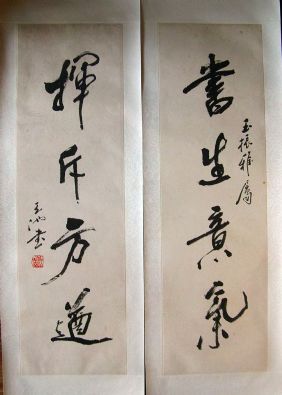 書生意氣
玉振雅屬
揮斥方遒
書